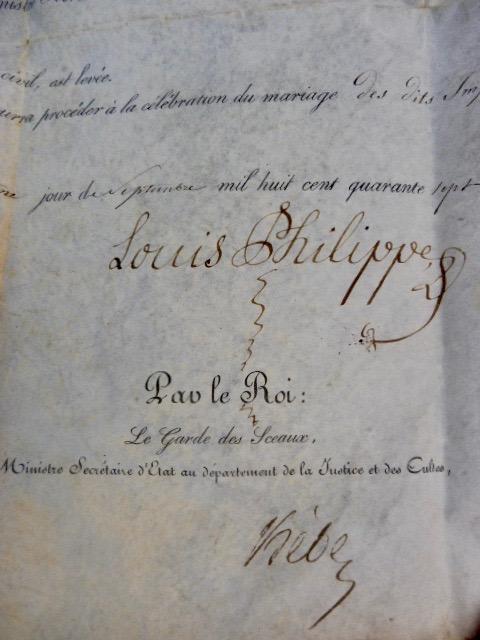 civil, est levée.
procéder à la célébration du mariage des dits
jour de Septembre mil huit cent quarante sept
Louis Philippe
Par le Roi:
Le Garde des Sceaux,
Ministre Secrétaire d'Etat au département de la Justice et des Cultes,
Hébert